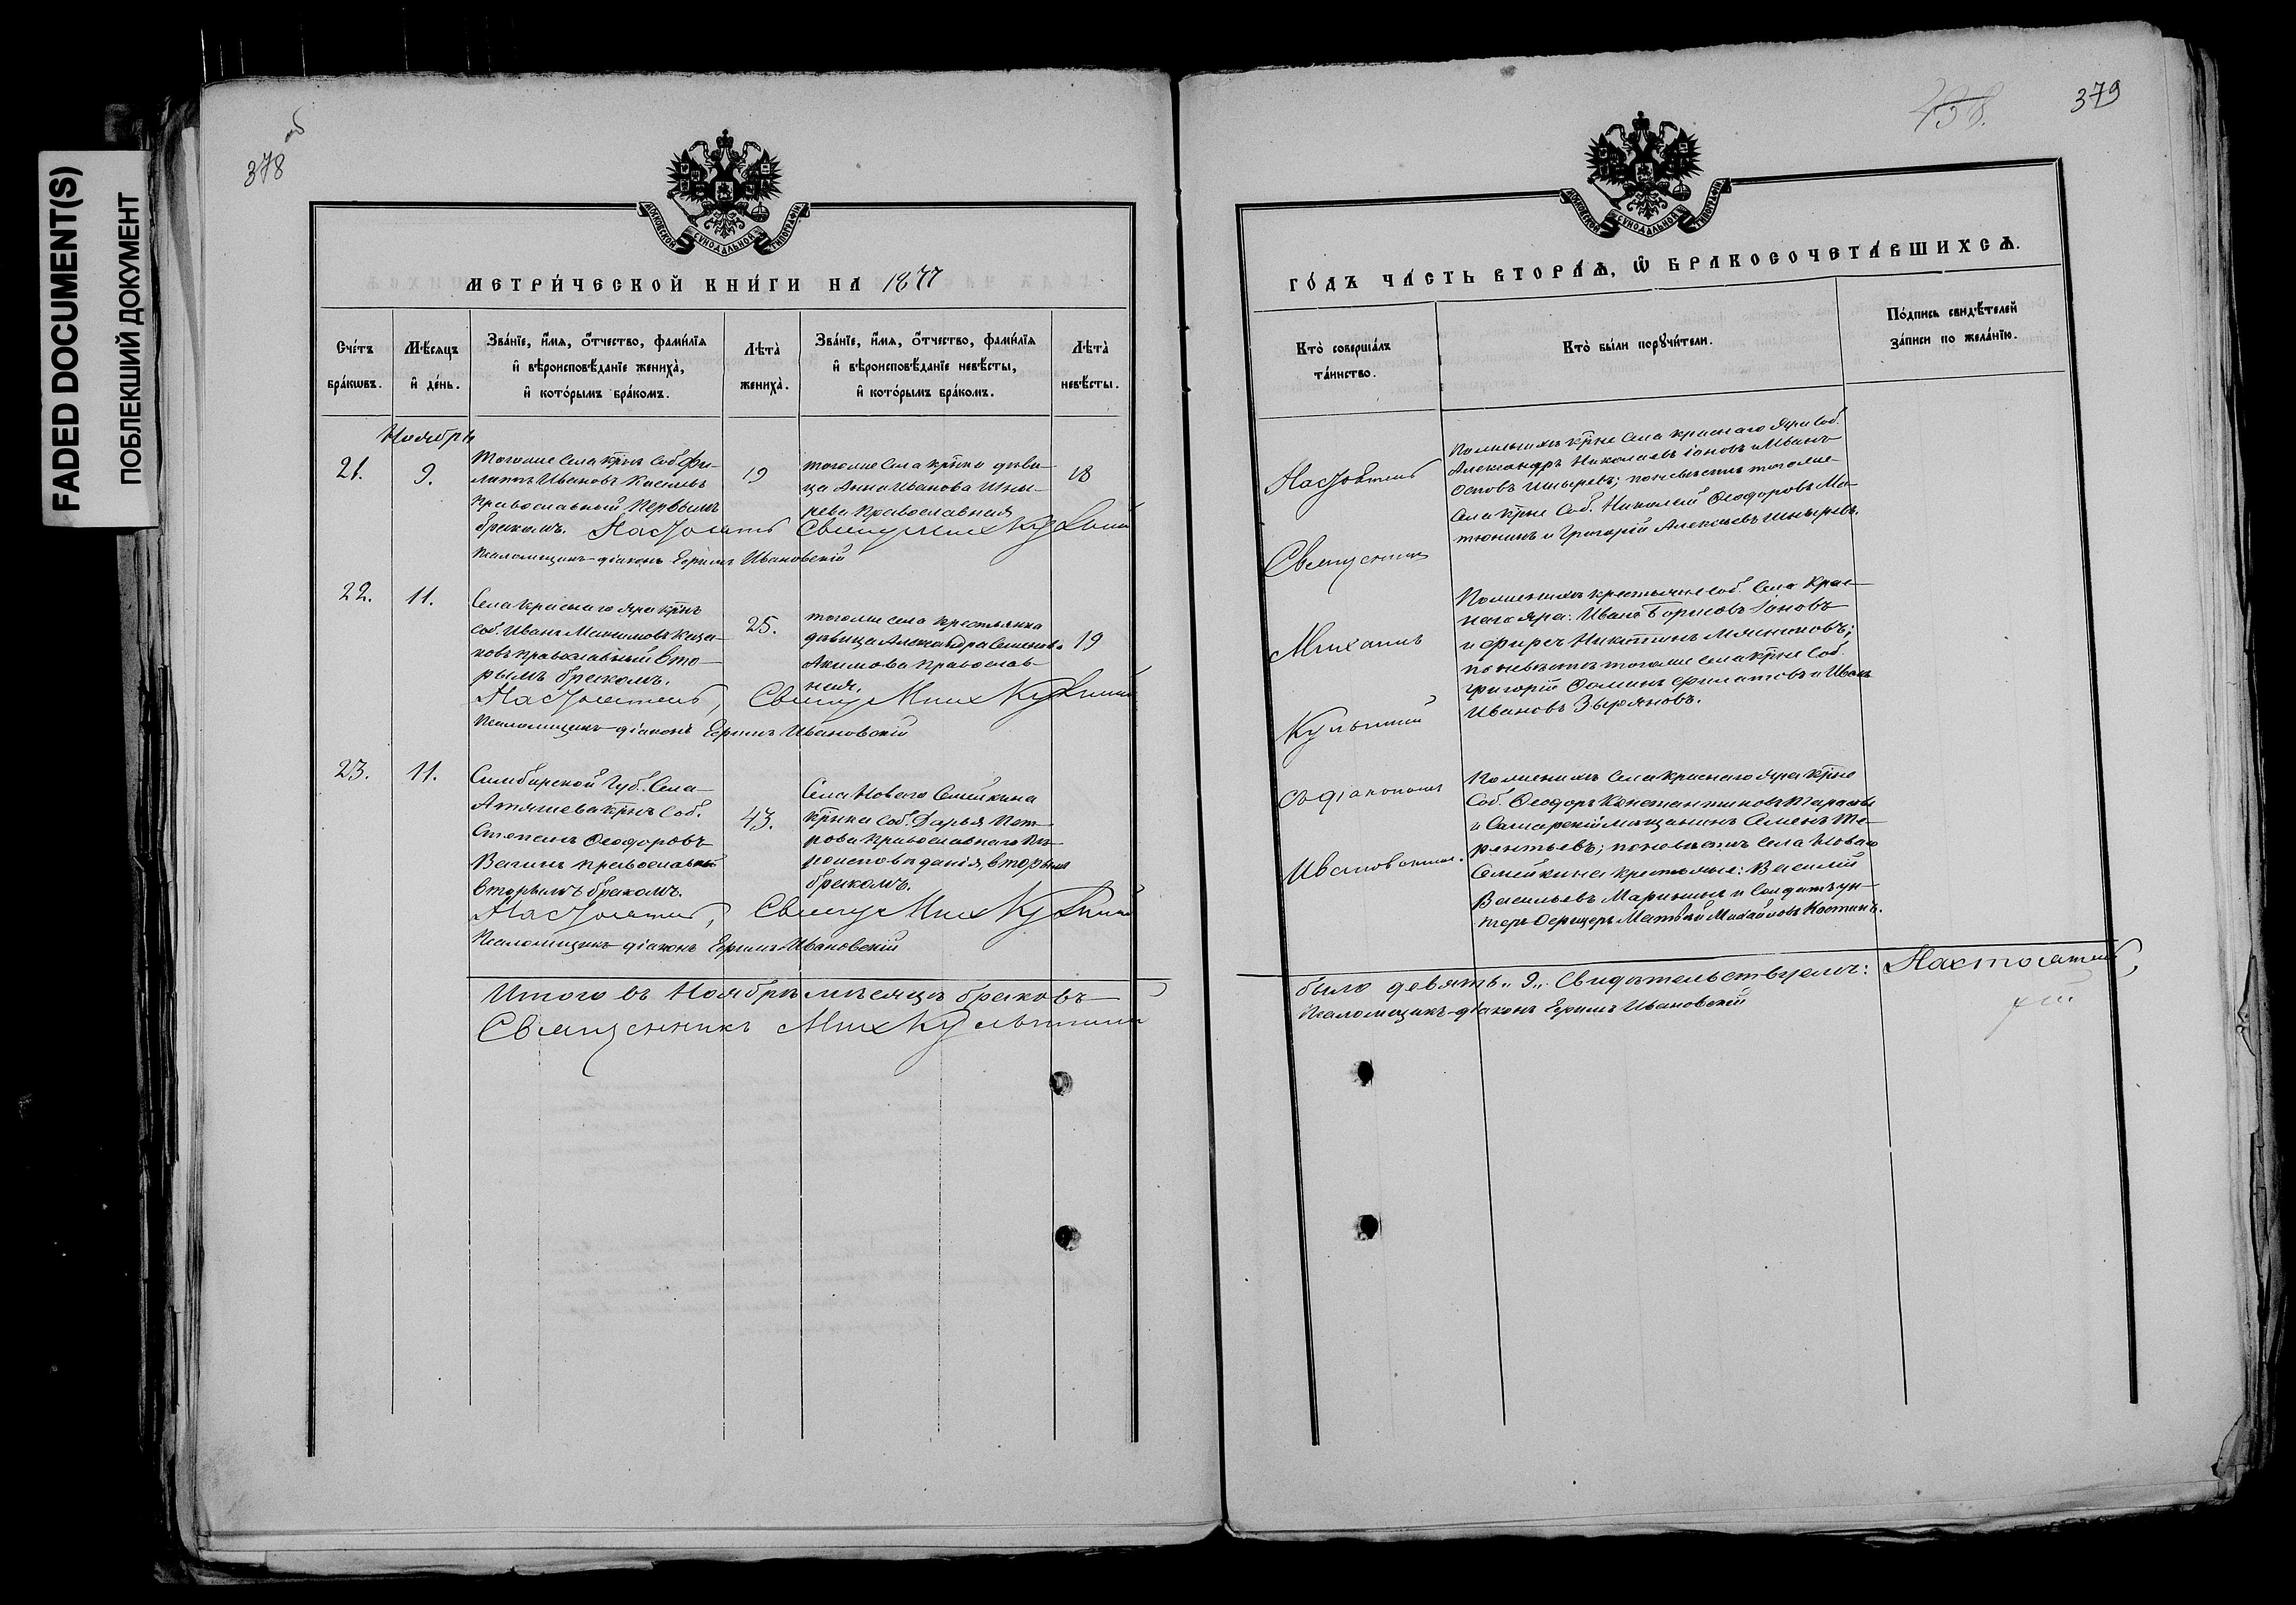 FADED DOCUMENT(S)
ПОБЛЕКШИЙ ДОКУМЕНТ
378 об
МОСКОВСКОЙ СУНОДАЛЬНОЙ ТИПОГРАФІИ
МЕТРИ́ЧЕСКОЙ КНИ́ГИ НА 1877
Сче́тъ бра́кωвъ.
Мѣ́сяцъ и҆ де́нь.
Зва́нїе, и҆́мя, ѻ҆́тчество, фами́лїя и҆ вѣроисповѣ́данїе жениха̀, и҆ кото́рымъ бра́комъ.
Лѣта̀ жениха̀.
Зва́нїе, и҆́мя, ѻ҆́тчество, фами́лїя и҆ вѣроисповѣ́данїе невѣ́сты, и҆ кото́рымъ бра́комъ.
Лѣта̀ невѣ́сты.
Ноябрь
21.
9.
Тогоже села кр̃нъ соб. Фи-
липпъ Ивановъ
православный первымъ
бракомъ.
19
тогоже села кр̃нка дѣви-
ца Анна Иванова Шны-
рева православная
18
Настоятель Свящ Мих Кульпинъ
Псаломщикъ-діаконъ Ефимъ Ивановскій
22.
11.
Села Краснаго Яра кр̃нъ
соб. Иванъ Максимовъ Каза-
ковъ православный вто-
рымъ бракомъ.
25.
тогоже села крестьянка
дѣвица Александра Семенова
Акимова православ-
ная.
19
Настоятель, Свящ Мих
Псаломщикъ діаконъ Ефимъ Ивановскій
23.
11.
Симбирской Губ. Села
Атяшева кр̃нъ соб.
Степанъ Ѳеодоровъ
Вагинъ православный
вторымъ бракомъ.
43.
Села Новаго Семейкина
кр̃нка соб. Дарья Пет-
рова православнаго вѣ-
роисповѣданія, вторымъ
бракомъ.
Настоятель, Свящ Мих
Псаломщикъ діаконъ Ефимъ Ивановскій
Итого въ Ноябрѣ мѣсяцѣ браковъ
Священникъ Мих
379
438.
МОСКОВСКОЙ СУНОДАЛЬНОЙ ТИПОГРАФІИ
ГО́ДЪ ЧА́СТЬ ВТОРА́Ѧ, Ѡ҆ БРАКОСОЧЕТА́ВШИХСѦ.
Кто̀ соверша́лъ та́инство.
Кто̀ бы́ли порꙋчи́тели.
По́дпись свидѣ́телей за́писи по жела́нїю.
Настоятель
Священникъ
Михаилъ
съ діакономъ
Ивановскимъ.
По женихѣ кр̃не села Краснаго Яра соб.
Александръ Николаевъ Іоновъ и Иванъ
Осиповъ Шнырева; по невѣстѣ тогоже
села кр̃не соб. Николай Ѳеодоровъ Ма-
тюнинъ и Григорій Алексѣевъ Шныревъ.
По женихѣ крестьяне соб. села Крас-
наго Яра: Иванъ Борисовъ Іоновъ
и Фирсъ Никитинъ Мясниковъ;
по невѣстѣ тогоже села кр̃не соб.
Григорій Ѳоминъ Филатовъ и Иванъ
Ивановъ Зыряновъ.
По женихѣ села Краснаго Яра кр̃не
соб. Ѳеодоръ Константиновъ Тарасовъ
и Самарскій мѣщанинъ Семенъ Те-
рентьевъ; по невѣстѣ села Новаго
Семейкина крестьяне: Василій
Васильевъ Маринин и солдатъ ун-
теръ Офицеръ Матвѣй Михайловъ Костинъ.
было девять „9„. Свидѣтельствуемъ: Настоятель,
Псаломщикъ-діаконъ Ефимъ Ивановскій